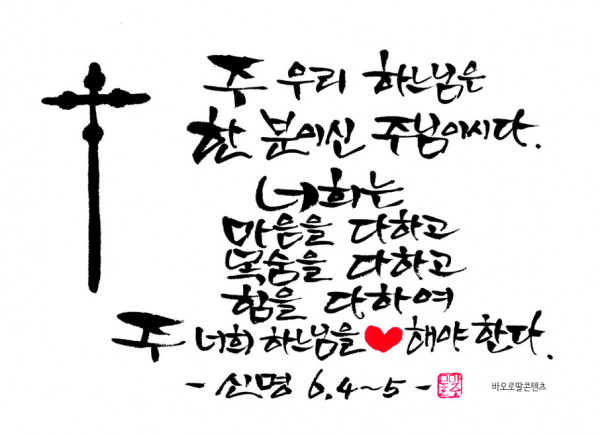 주 우리 하느님은
한 분이신 주님이시다.
너희는
마음을 다하고
목숨을 다하고
힘을 다하여
주 너희 하느님을 ♥ 해야 한다.
- 신명 6,4~5 -
바오로딸콘텐츠